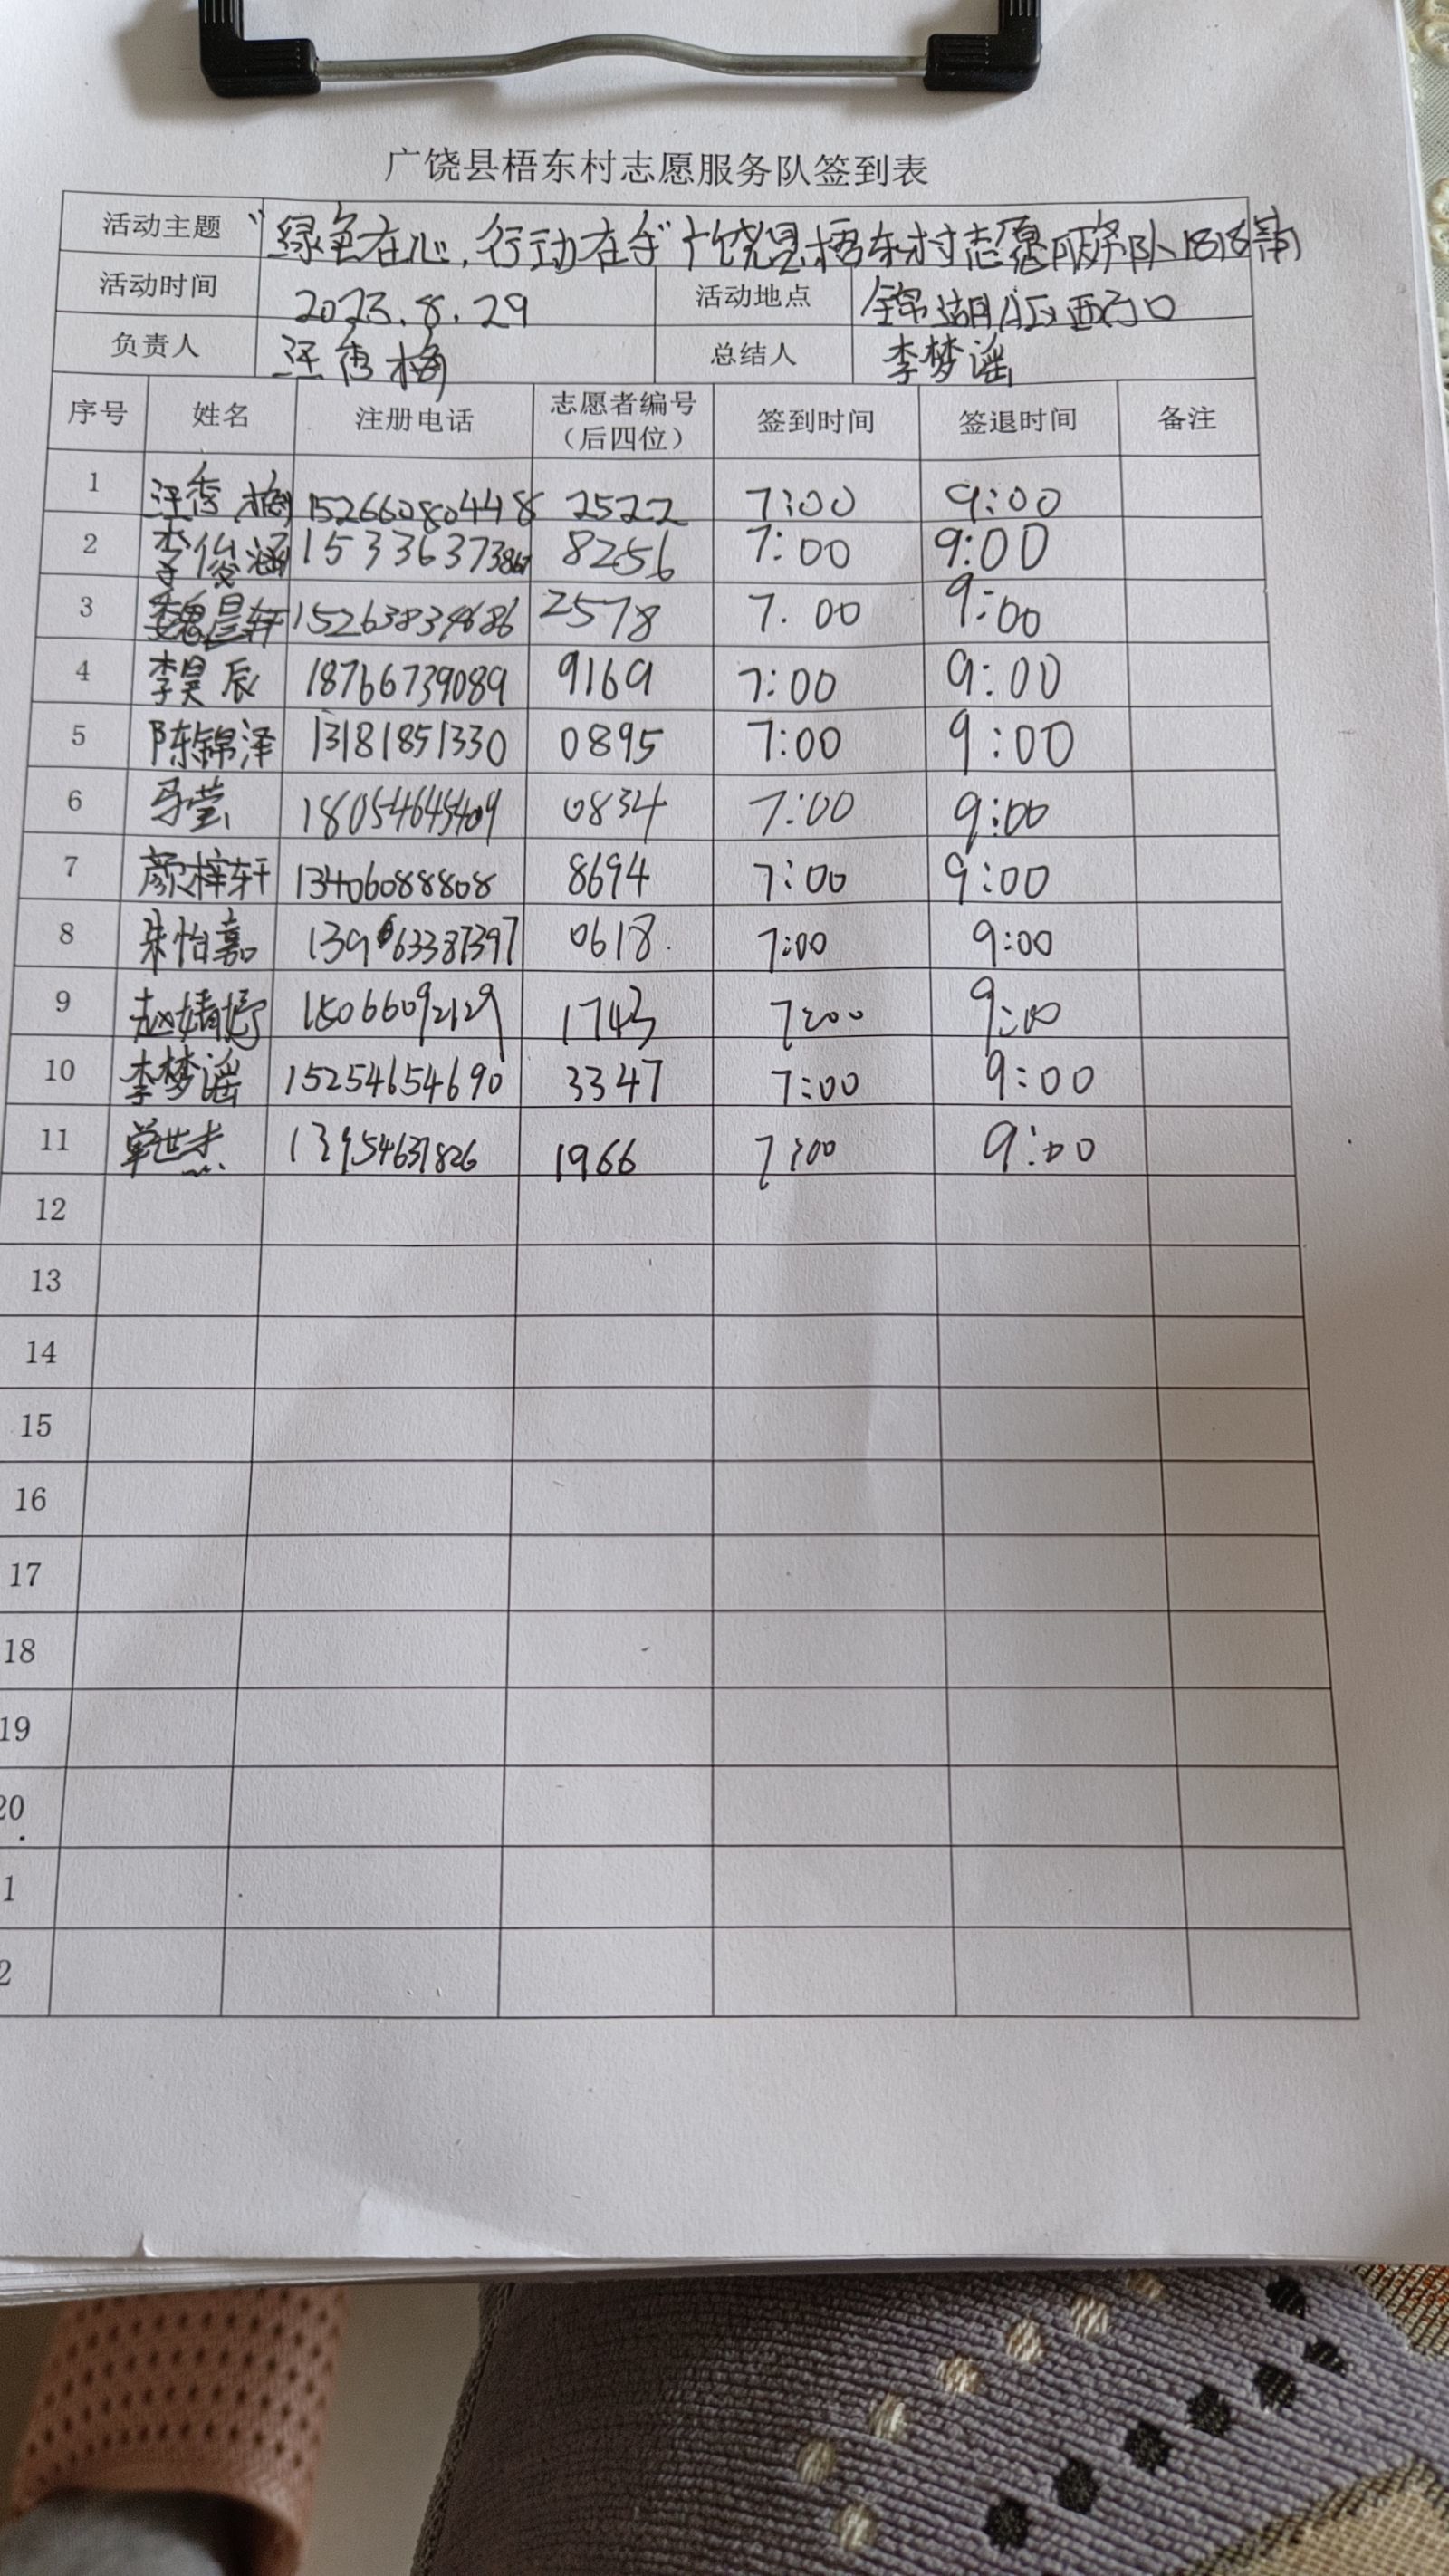 广饶县梧东村志愿服务队签到表
活动主题 “绿色在心,行动在手”广饶县梧东村志愿服务队1818期
活动时间 2023.8.29 活动地点 锦湖小区西门口
负责人 汪秀梅 总结人 李梦谣
序号 姓名 注册电话 志愿者编号（后四位） 签到时间 签退时间 备注
1 汪秀梅 15266080448 2522 7:00 9:00
2 李俊涵 8256 7:00 9:00
3 魏昱轩 2578 7.00 9:00
4 李昊辰 18766739089 9169 7:00 9:00
5 陈锦泽 13181851330 0895 7:00 9:00
6 马莹 18054645409 0834 7:00 9:00
7 颜梓轩 13406088808 8694 7:00 9:00
8 朱怡嘉 13963387397 0618 7:00 9:00
9 赵婧妤 15066092129 1743 7:00 9:00
10 李梦谣 15254654690 3347 7:00 9:00
11 单世杰 13954631826 1966 7:00 9:00
12
13
14
15
16
17
18
19
20
1
2